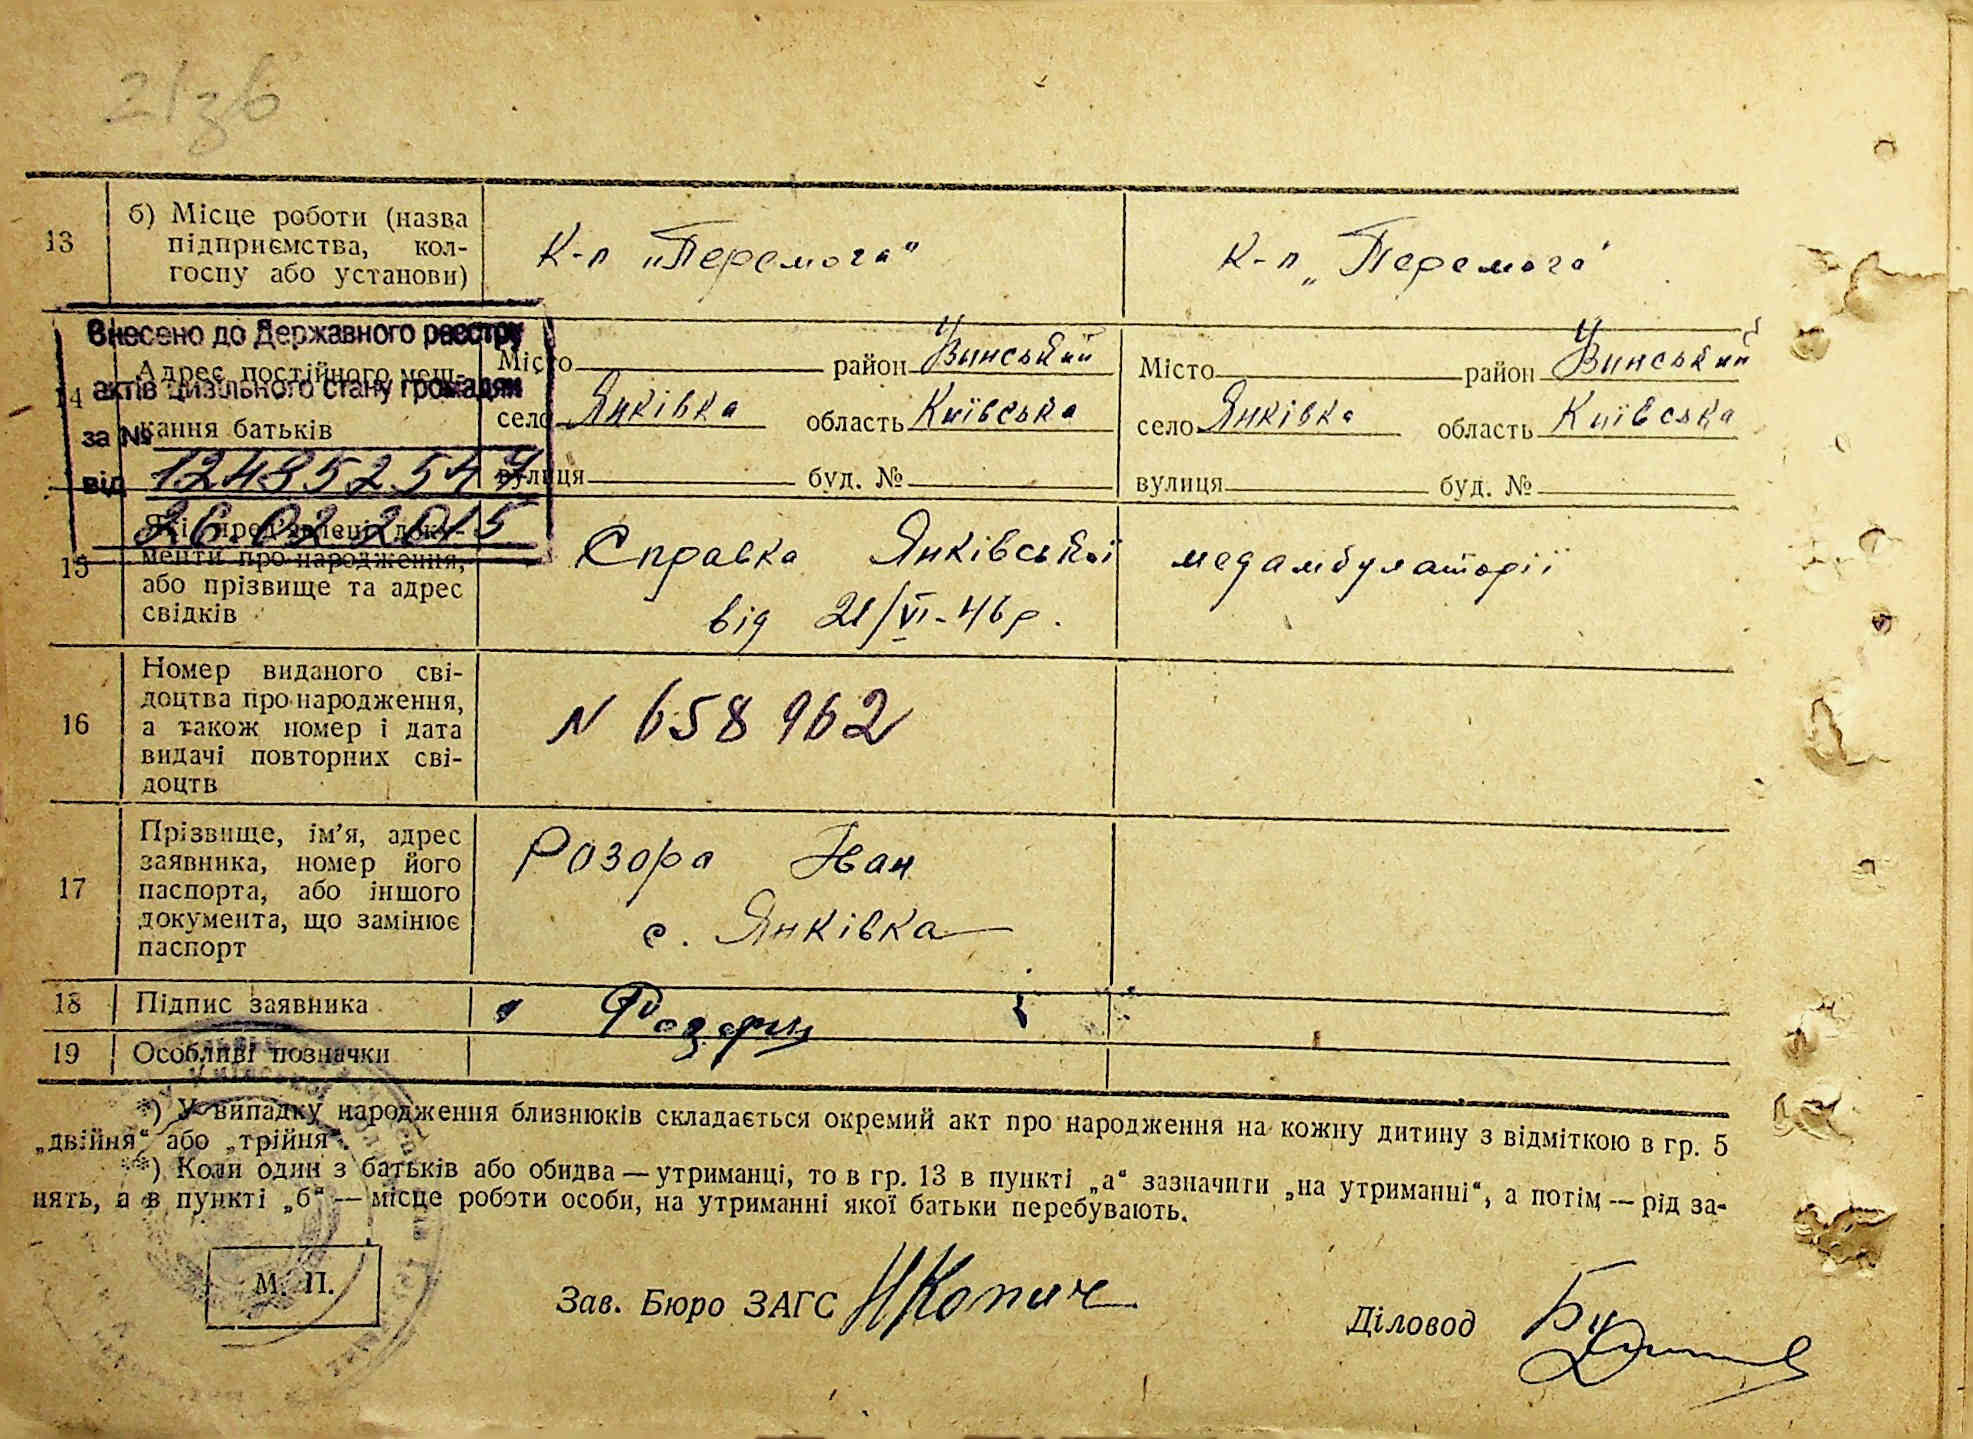 21зв
13
б) Місце роботи (назва
підприємства, кол-
госпу або установи)
К-п „Перемога“
К-п „Перемога
Внесено до Державного реєстру
актів цивільного стану громадян
за № 1248525 47
від 26.02 2015
14
Адрес постійного меш-
кання батьків
Місто район
село Янківка область Київська
вулиця буд. №
Місто район
село Янківка область Київська
вулиця буд. №
15
Які пред'явлені доку-
менти про народження,
або прізвище та адрес
свідків
Справка Янківської медамбулаторії
від 21/VI-46р.
16
Номер виданого сві-
доцтва про народження,
а також номер і дата
видачі повторних сві-
доцтв
N 658962
17
Прізвище, ім’я, адрес
заявника, номер його
паспорта, або іншого
документа, що замінює
паспорт
Розора Іван
с. Янківка
18
Підпис заявника
19
Особливі позначки
*) У випадку народження близнюків складається окремий акт про народження на кожну дитину з відміткою в гр. 5
„двійня“ або „трійня“.
**) Коли один з батьків або обидва — утриманці, то в гр. 13 в пункті „а“ зазначити „на утриманні“, а потім — рід за-
нять, а в пункті „б“ — місце роботи особи, на утриманні якої батьки перебувають.
М. П.
Зав. Бюро ЗАГС
Діловод